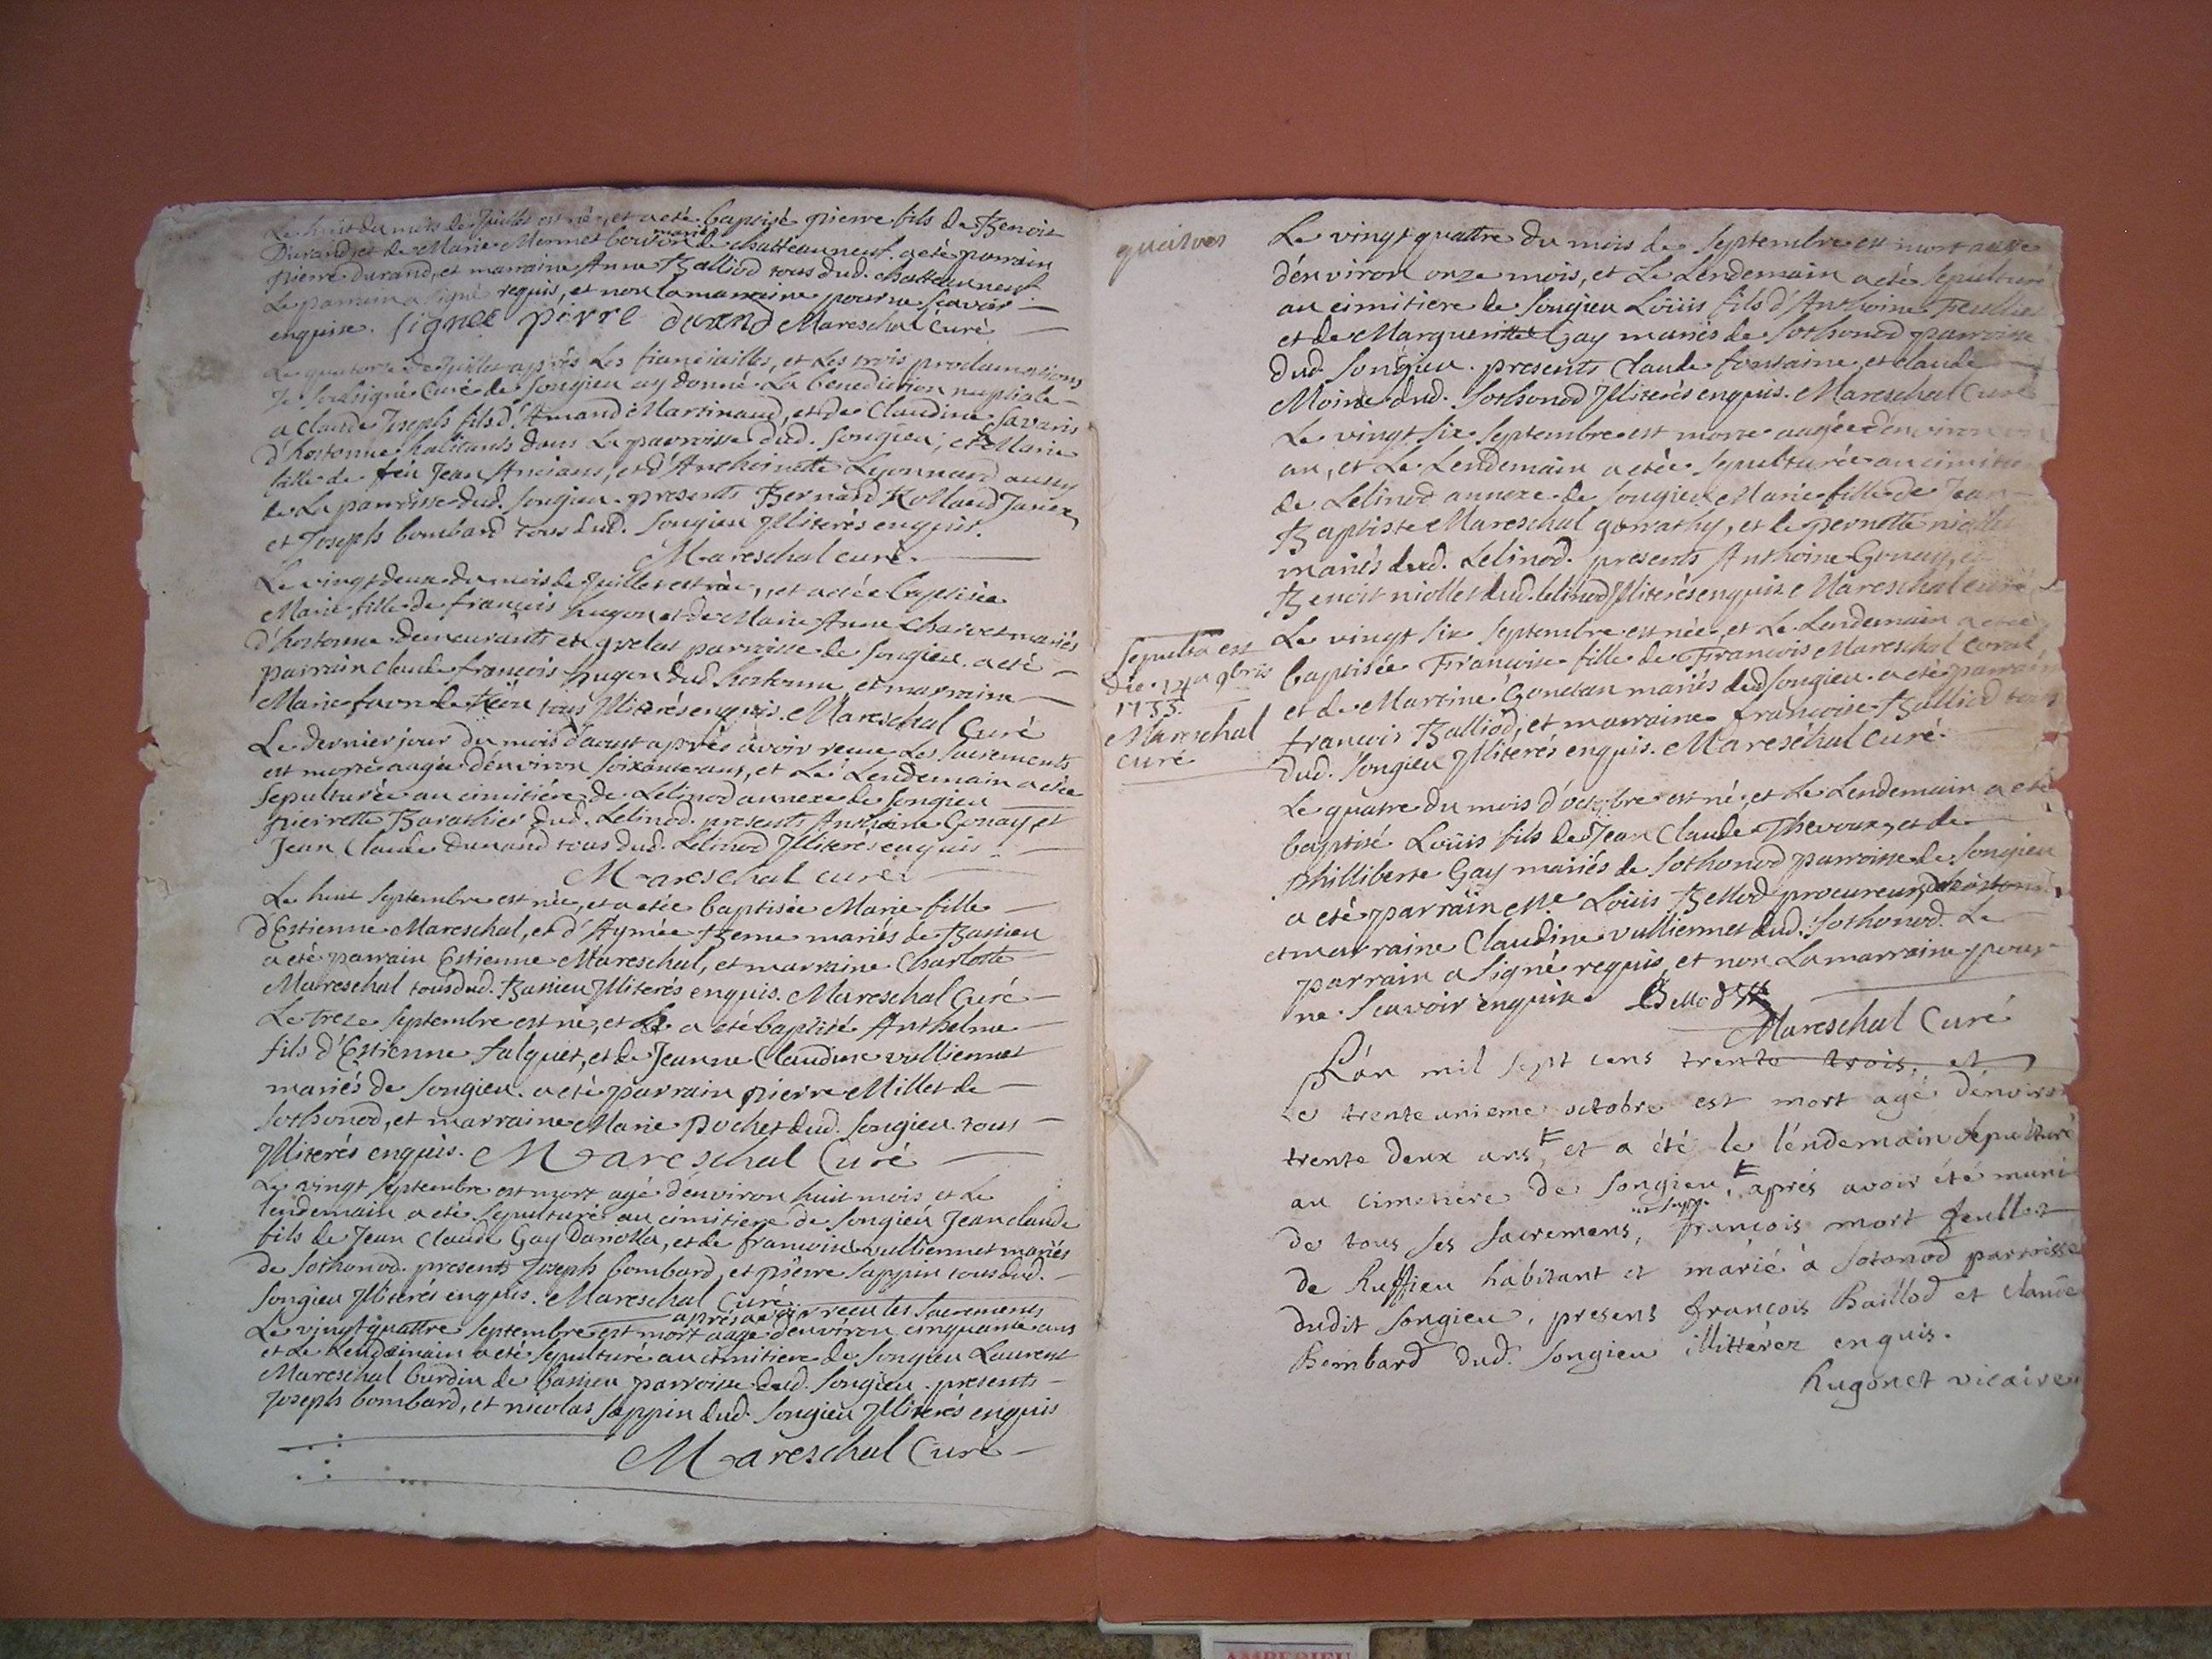 Le huit du mois de Juillet est né, et a eté baptisé pierre fils de Benoit
Durand, et de Marie Mermet bouvon mariés de chatteauneuf. a eté parrain
pierre Durand, et marraine Anne Balliod tous dud. chatteauneuf
Le parrain a signé requis, et non la marraine pour ne sçavoir
enquise. signee pierre durend Mareschal Curé
Le quatorze de Juillet après Les fiançiailles, et Les trois proclamations
Je soussigné Curé de Songieu ay donné La benediction nuptiale
a claude Joseph fils d'Amand Martinaud, et de Claudine Savarin
d'hostonne habitants dans La parroisse dud. Songieu; et Marie
fille de feu Jean Ancians, et d'Anthoinette Lyonnard aussy
de La parroisse dud. Songieu. presents Bernard Rolland Janex
et Joseph bombard tous dud. Songieu Jlliterés enquis.
Mareschal curé
Le vingt deux du mois de Juillet est née, et a etée baptisée
Marie fille de françois hugon et de Marie Anne Charvet mariés
d'hostonne demeurants en gvelas parroisse de Songieu. a eté
parrain claude françois hugon dud hostonne et marraine
Marie favre de tous Jlliterés enquis. Mareschal Curé
Le dernier jour du mois d'aoust après avoir receu Les sacrements
est morte aagée d'environ soixante ans, et Le Lendemain a etée
Sepulturée au cimitiére de Lelinod annexe de Songieu
pierrette Barathier dud. Lelinod. presents Anthoine Gonay, et
Jean Claude Dunand tous dud. Lelinod Jlliterés enquis
Mareschal curé
Le huit septembre est née, et a etée baptisée Marie fille
d'Estienne Mareschal, et d'Aymée Berne mariés de Bassieu
a eté parrain Estienne Mareschal, et marraine Charlotte
Mareschal tous dud. Bassieu Jlliterés enquis. Mareschal Curé
Le treze septembre est né, et a eté baptisé Anthelme
fils d'Estienne Falquet, et de Jeanne Claudine vulliermet
mariés de Songieu. a eté parrain pierre Millet de
Sothonod, et marraine Marie Pochet dud. Songieu. tous
Jlliterés enquis. Mareschal Curé
Le vingt septembre est mort agé d'environ huit mois et Le
lendemain a eté sepulturé au cimitiere de Songieu Jean claude
fils de Jean Claude Gay Danolla, et de françoise vulliermet mariés
de Sothonod. presents Joseph bombard, et pierre Sappin tous dud.
Songieu Jlliterés enquis. Mareschal Curé
après avoir receu les sacrements
Le vingt quattre septembre est mort aagé d'environ cinquante ans
et Le Lendemain a eté sepulturé au cimitiere de Songieu Laurent
Mareschal burdin de bassieu parroisse dud. Songieu. presents
Joseph bombard, et nicolas Sappin dud. Songieu Jlliterés enquis
Mareschal Curé
quatver
Le vingt quattre du mois de septembre est mort aagé
d'environ onze mois, et Le Lendemain a eté sepulturé
au cimitiere de Songieu Loüis fils d'Anthoine Feullie
et de Marguerittte Gay mariés de Sothonod parroisse
dud. Songieu. presents Claude fontaine, et claude
Moine dud. Sothonod Jlliterés enquis. Mareschal Curé
Le vingt six septembre est morte aagée d'environ un
an, et Le Lendemain a etée sepulturée au cimitie
de Lelinod annexe de Songieu Marie fille de Jean
Baptiste Mareschal gorrathy, et de pernette niollet
mariés dud. Lelinod. presents Anthoine Gonay, et
Benoit niollet dud. lelinod Jlliterés enquis Mareschal curé
Le vingt six septembre est née, et Le Lendemain a etée
baptisée Françoise fille de François Mareschal coral
et de Martine Gonetan mariés dud Songieu. a eté parrain
françois Balliod, et marraine françoise Balliod tous
dud. Songieu Jlliterés enquis. Mareschal curé.
Sepulta est
die 14a 9bris
1733.
Mareschal
curé
Le quatre du mois d'octobre est né, et Le Lendemain a eté
baptisé Loüis fils de Jean Claude Thevoux, et de
philliberte Gay mariés de Sothonod parroisse de Songieu
a eté parrain Me Loüis Bellod procureur
et marraine Claudine vulliermet dud. Sothonod. Le
parrain a signé requis, et non La marraine pour
ne sçavoir enquise Bellod
Mareschal Curé
L'an mil sept cens trente trois, et
Le trente unieme octobre est mort agé d'environ
trente deux ans, et a été le l'endemain sepulturé
au cimetiere de Songieu, aprés avoir été muni
de tous ses sacremens, françois mort feullet
de Ruffieu habitant et marié à Sotonod parroisse
dudit Songieu, presens françois Baillod et claude
Bombard dud. Songieu illitterez enquis.
hugonet vicaire